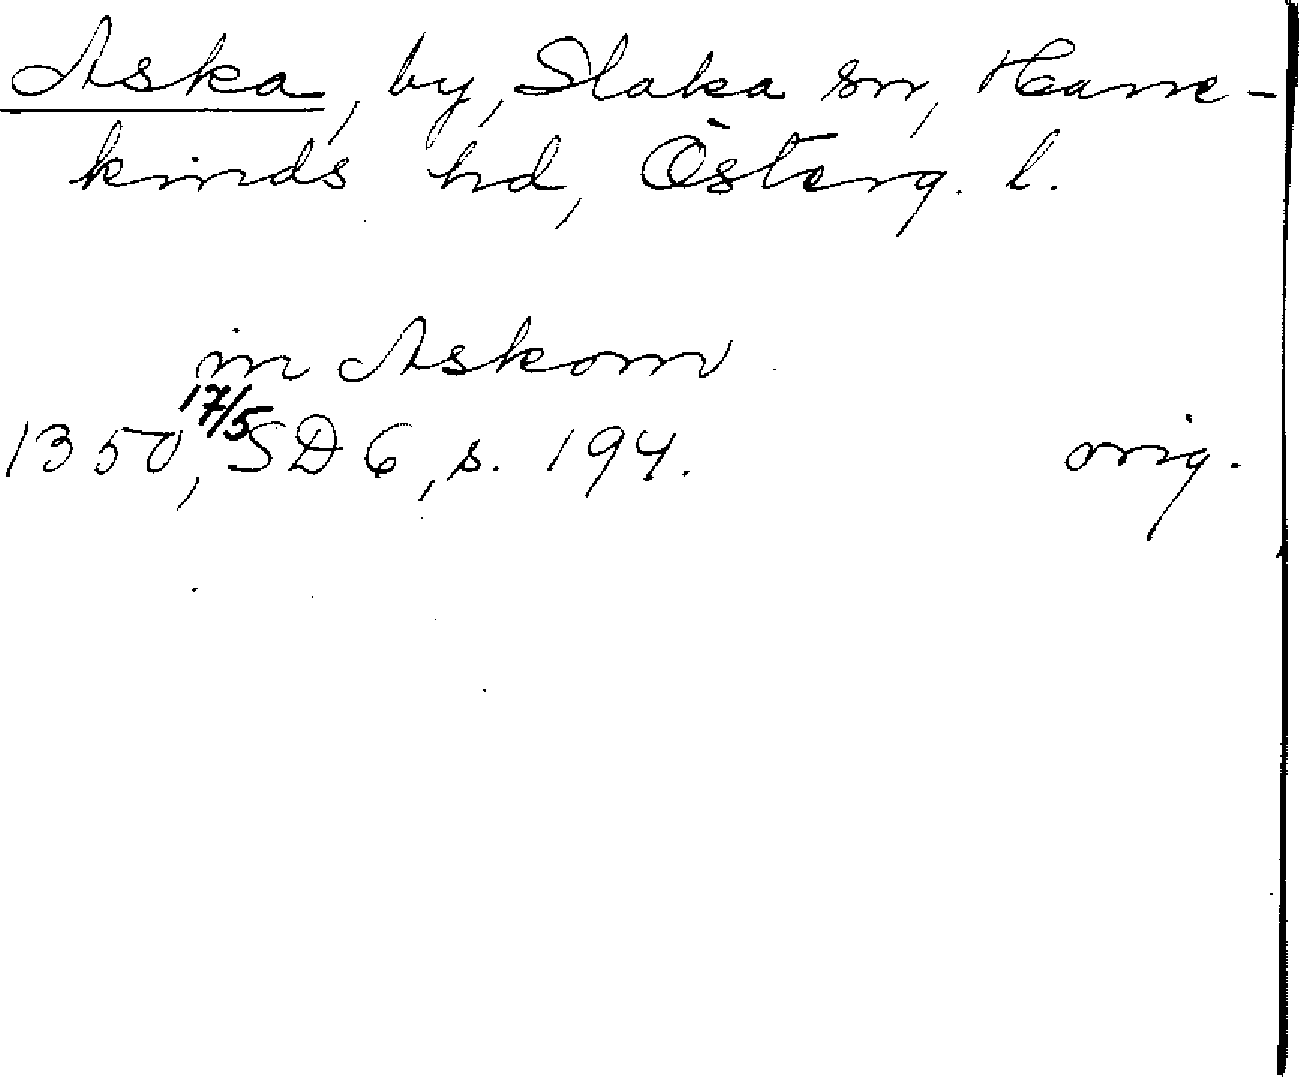 Aska, by, Slaka sn, Hane-
kinds hd, Österg. l.
in Askom
1350 17/5, SD 6, s. 194.
orig.